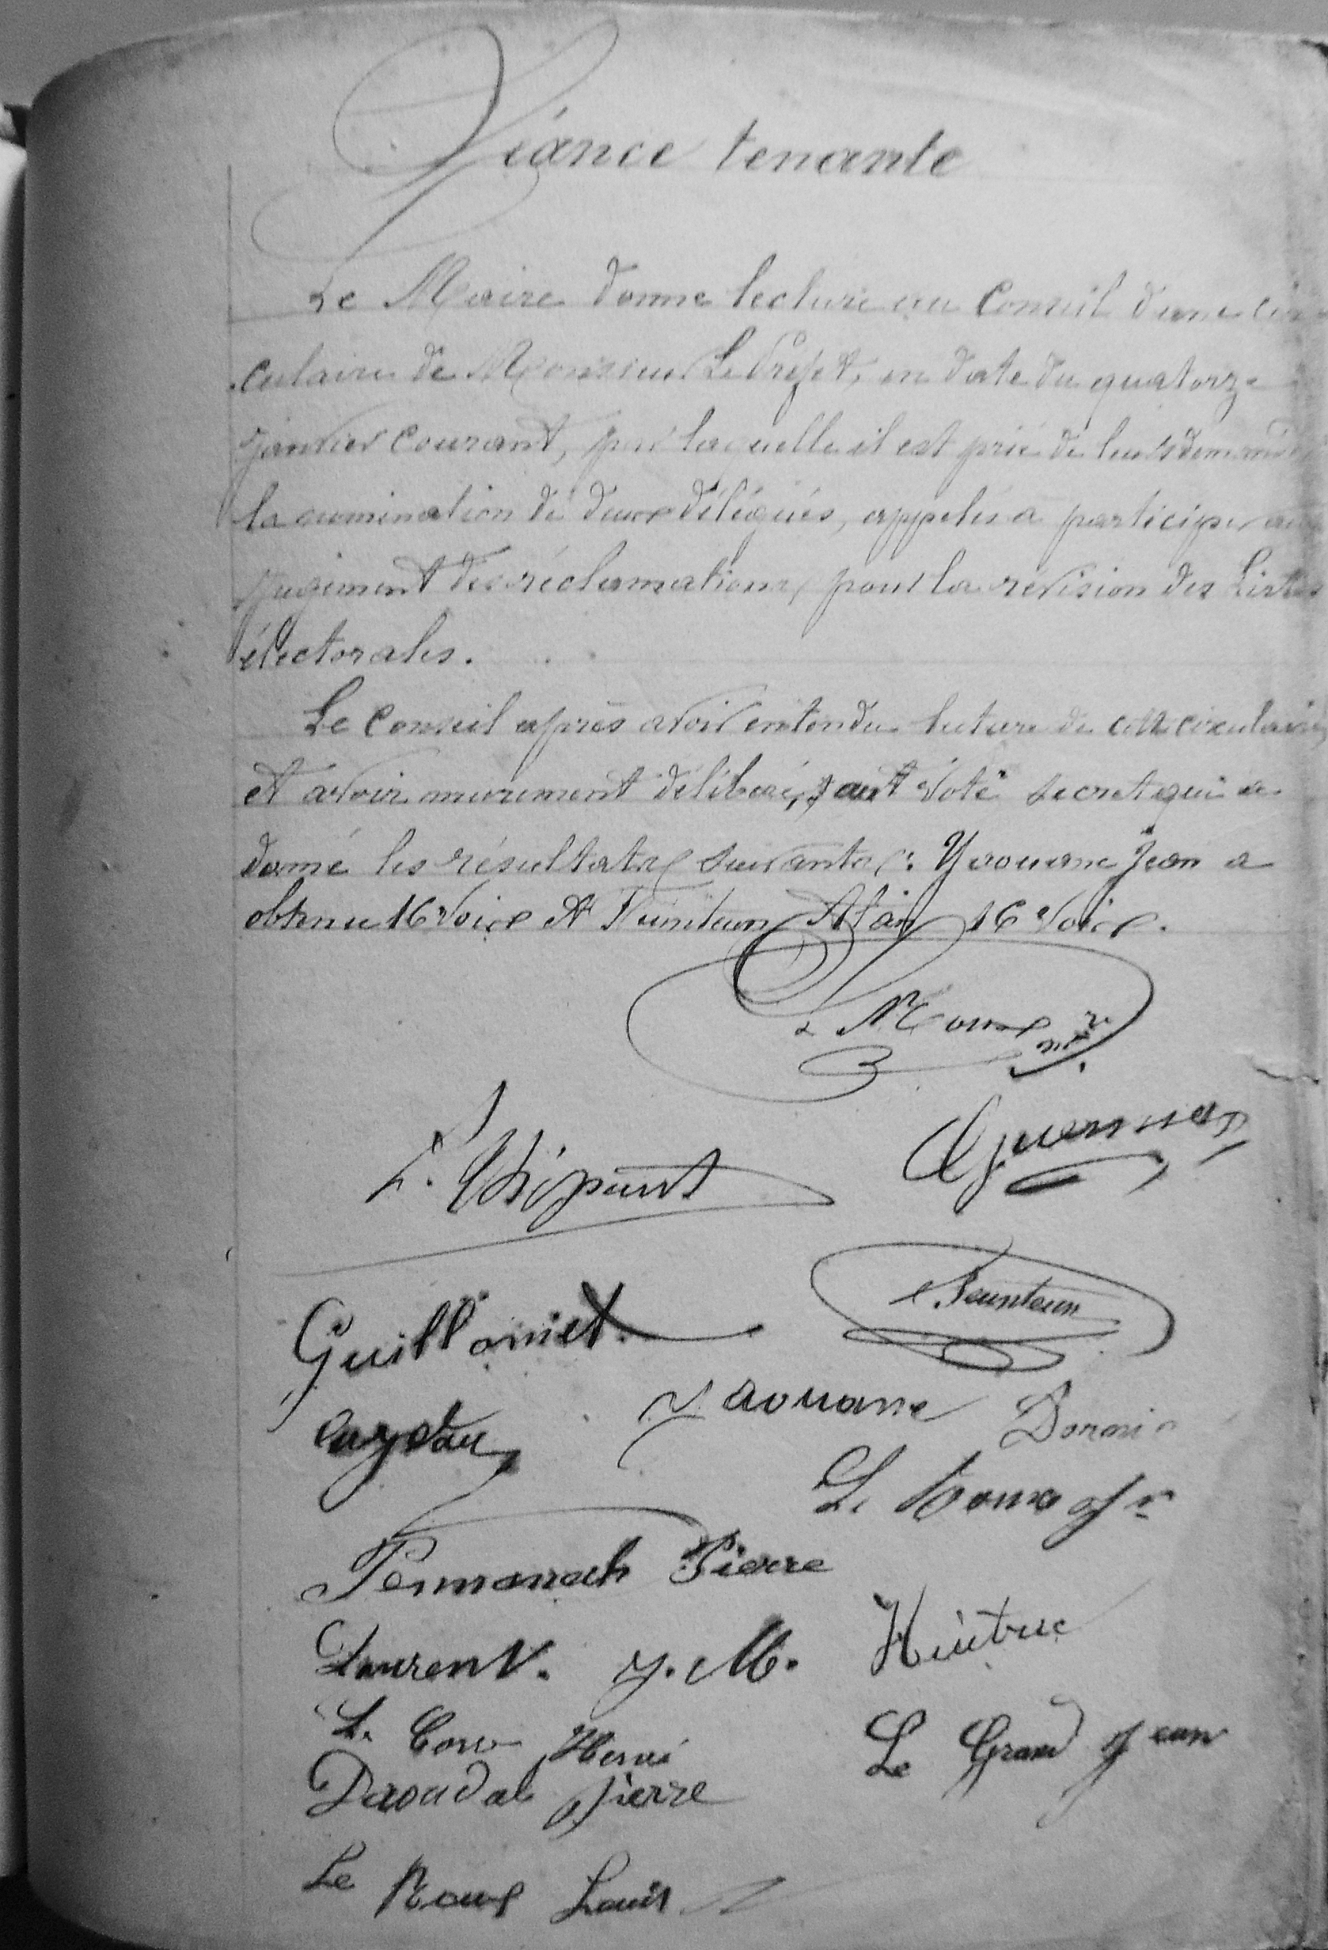 Séance tenante
Le Maire donne lecture au Conseil d'une cir
culaire de Monsieur Le Préfet, en date du quatorze
janvier courant, par laquelle il est prié de leurs demander
la nomination de deux délégués, appelés à participer au
jugement des réclamations, pour la révision des Listes
électorales.
Le Conseil après avoir entendu lecture de cette circulaire,
et avoir murement délibéré, voté secret qui a
donné les résultats suivants : Yaouanc Jean a
obtenu 16 voix et Feunteun Alain 16 voix.
Guillomet
Feunteun
Yaouanc
Le Roux
Pennanech Pierre
Laurent. y. M.
Le Corre Hervé
Le Grand Jean
Daoudal Pierre
Le Roux Louis